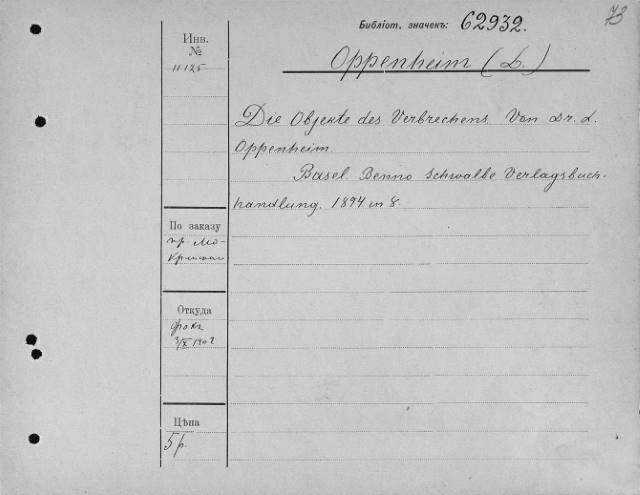 Библіот. значекъ: 62932.
73
Инв.
№
11125
Oppenheim (L.)
Die Objekte des Verbrechens. Von Dr. L.
Oppenheim.
Basel Benno Schwalbe Verlagsbuch-
handlung. 1894 in 8.
По заказу
пр. Мо-
Откуда
Фокъ
3/IX 1902
Цѣна
5 р.